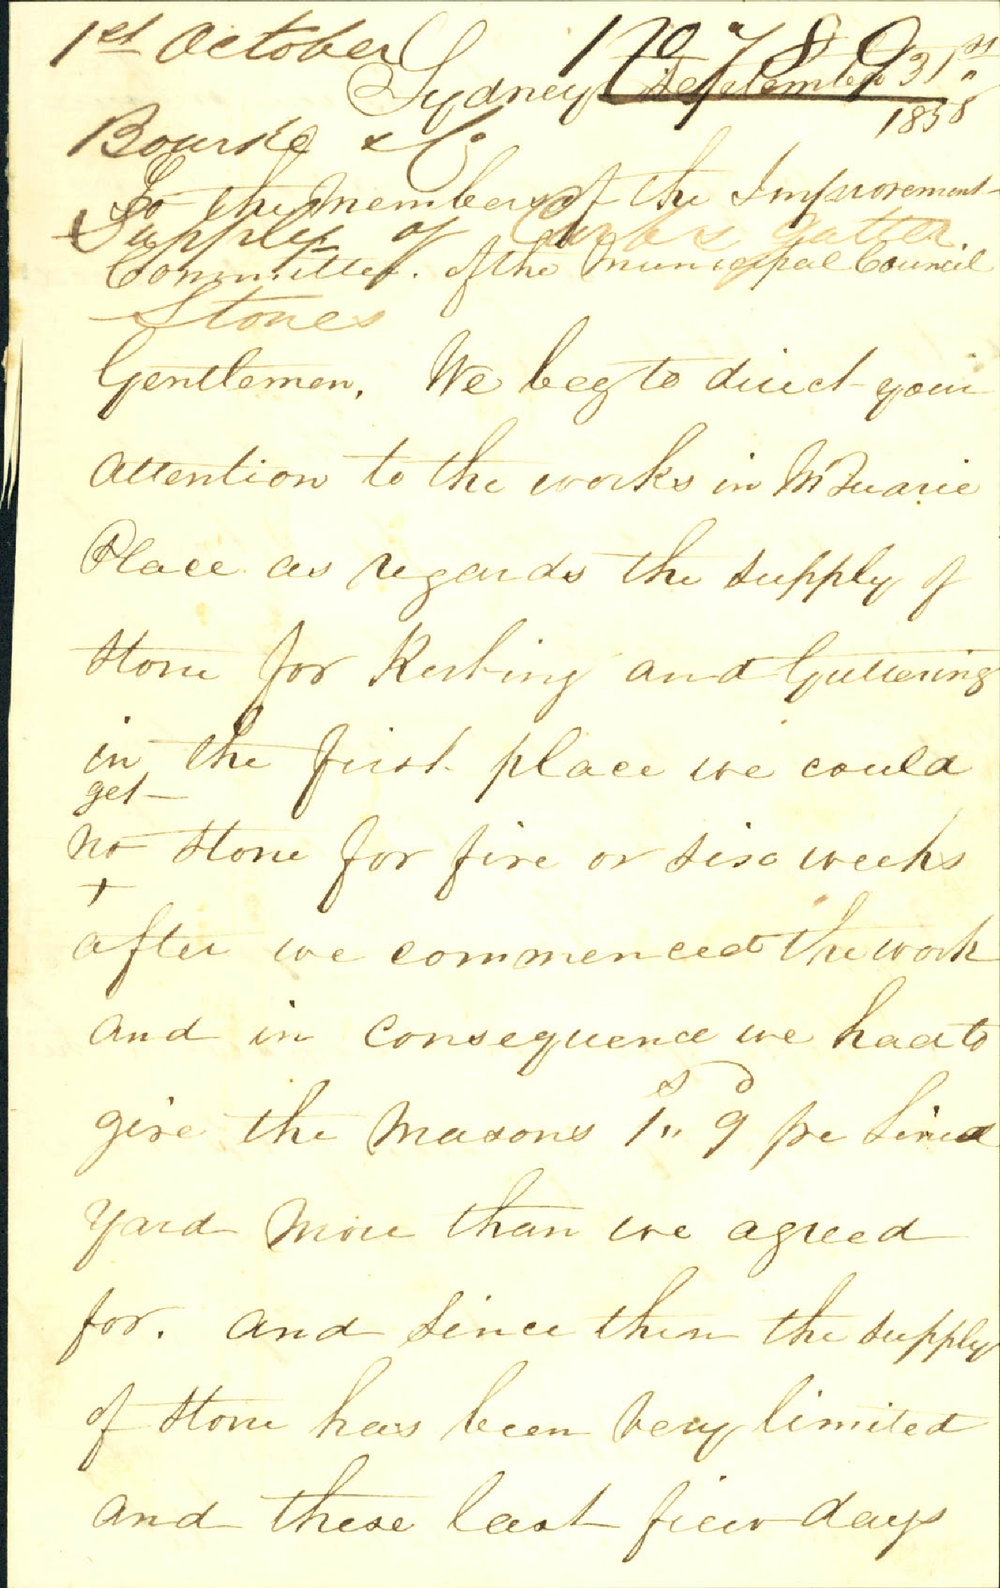 1st October
No 789
Sydney September 31st
1858
Bourke & Co
To the Members of the Improvement
Supply of Curb & Gutter
Committee. of the Municipal Council
Stones
Gentlemen, We beg to direct your
attention to the works in McQuarie
Place as regards the supply of
Stone for Kerbing and Guttering
in the first place we could
get
no stone for five or six weeks
+
after we commenced the work
and in consequence we had to
give the Masons 1s" 9d pe Lined
Yard More than we agreed
for. and since then the supply
of stone has been very limited
and these last few days